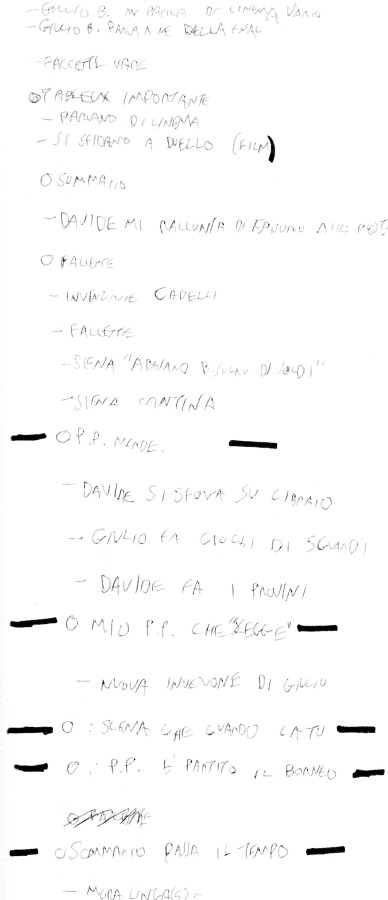 - GIULIO B. MI PARLA DI CINEMA VARIO
- GIULIO B. PARLA A ME DELLA
- FACCETTE VARIE
O TABLEUX IMPORTANTE
- PARLANO DI CINEMA
- SI SFIDANO A DUELLO (FILM)
O SOMMARIO
- DAVIDE MI RACCONTA DI
O FACCETTE
- INVENZIONE CAPELLI
- FACCETTE
- SCENA "ABBIAMO BISOGNO DI SOLDI"
- SCENA CANTINA
O P.P. MENDE.
- DAVIDE SI SFOGA SU LIBRAIO
- GIULIO FA GIOCHI DI SGUARDI
- DAVIDE FA I PROVINI
O MIO P.P. CHE "LEGGE"
- NUOVA INVENZIONE DI GIULIO
O : SCENA CHE GUARDO LA TV
O : P.P. È PARTITO IL BORNEO
O SOMMARIO PASSA IL TEMPO